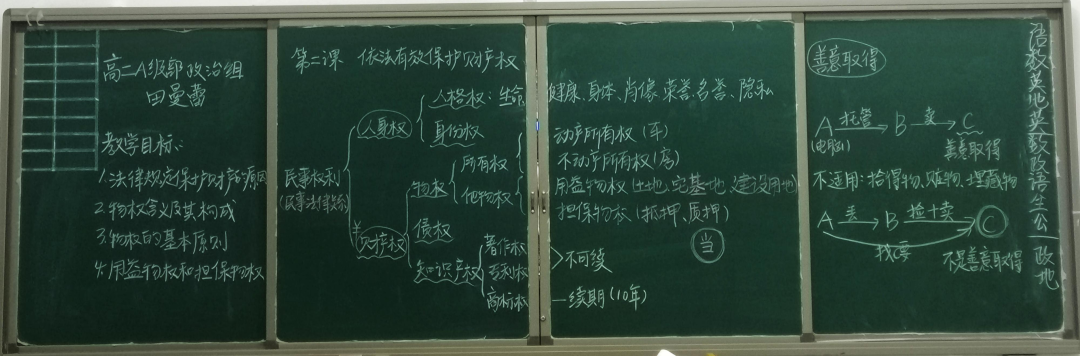 高二A级部政治组
田曼蕾
教学目标:
1.法律规定保护财产的原因
2.物权含义及其构成
3.物权的基本原则
4.用益物权和担保物权
第二课 依法有效保护财产权
人格权：生命、健康、身体、肖像、荣誉、名誉、隐私
人身权
身份权
民事权利
(民事法律关系)
财产权
物权
所有权
动产所有权(车)
不动产所有权(房)
他物权
用益物权(土地、宅基地、建设用地)
担保物权(抵押、质押)
当
债权
知识产权
著作权
专利权
不可续
商标权
一续期(10年)
善意取得
A 托管 B 卖 C
(电脑)
善意取得
不适用:拾得物、赃物、埋藏物
A 丢 B 捡+卖 C
找要
不是善意取得
语数英地英数政语生公一政地